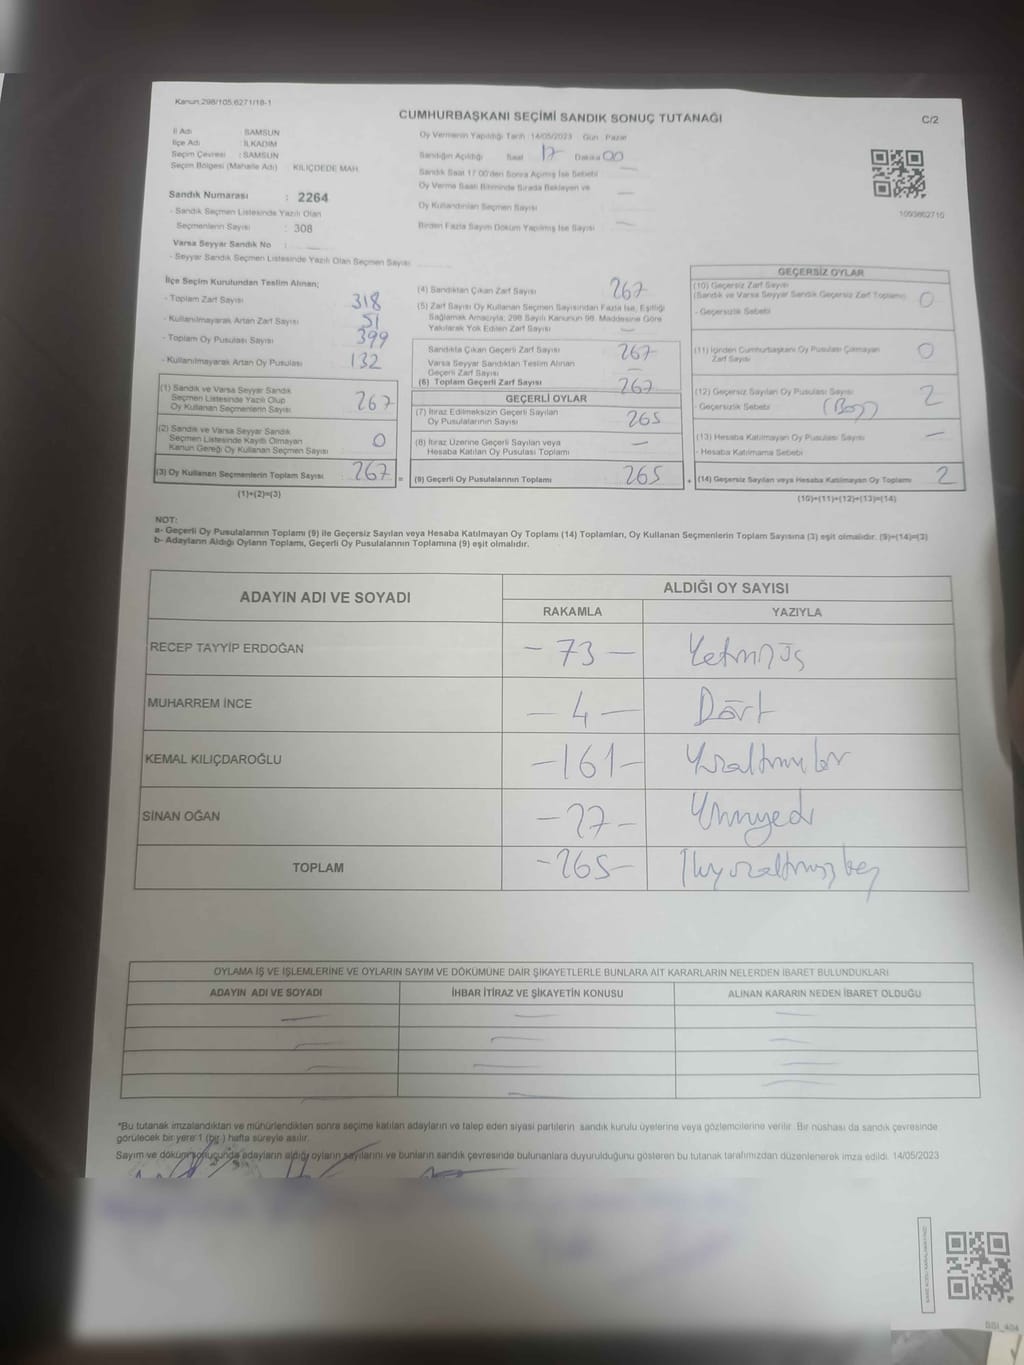 Kanun.298/105,6271/18-1
CUMHURBAŞKANI SEÇİMİ SANDIK SONUÇ TUTANAĞI
C/2
İl Adı : SAMSUN
İlçe Adı : İLKADIM
Seçim Çevresi : SAMSUN
Seçim Bölgesi (Mahalle Adı) KILIÇDEDE MAH.
Sandık Numarası : 2264
- Sandık Seçmen Listesinde Yazılı Olan
Seçmenlerin Sayısı : 308
Varsa Seyyar Sandık No :
- Seyyar Sandık Seçmen Listesinde Yazılı Olan Seçmen Sayısı
Oy Vermenin Yapıldığı Tarih :14/05/2023 Gün : Pazar
Sandığın Açıldığı Saat 17 Dakika 00
Sandık Saat 17.00'den Sonra Açılmış İse Sebebi —
Oy Verme Saati Bitiminde Sırada Bekleyen ve
Oy Kullandırılan Seçmen Sayısı —
Birden Fazla Sayım Döküm Yapılmış İse Sayısı —
1093862710
İlçe Seçim Kurulundan Teslim Alınan;
- Toplam Zarf Sayısı 318
- Kullanılmayarak Artan Zarf Sayısı 51
- Toplam Oy Pusulası Sayısı 399
- Kullanılmayarak Artan Oy Pusulası 132
(1) Sandık ve Varsa Seyyar Sandık
Seçmen Listesinde Yazılı Olup
Oy Kullanan Seçmenlerin Sayısı 267
(2) Sandık ve Varsa Seyyar Sandık
Seçmen Listesinde Kayıtlı Olmayan
Kanun Gereği Oy Kullanan Seçmen Sayısı 0
(3) Oy Kullanan Seçmenlerin Toplam Sayısı 267 =
(1)+(2)=(3)
(4) Sandıktan Çıkan Zarf Sayısı 267
(5) Zarf Sayısı Oy Kullanan Seçmen Sayısından Fazla İse, Eşitliği
Sağlamak Amacıyla; 298 Sayılı Kanunun 98. Maddesine Göre
Yakılarak Yok Edilen Zarf Sayısı —
Sandıkta Çıkan Geçerli Zarf Sayısı 267
Varsa Seyyar Sandıktan Teslim Alınan
Geçerli Zarf Sayısı —
(6) Toplam Geçerli Zarf Sayısı 267
GEÇERLİ OYLAR
(7) İtiraz Edilmeksizin Geçerli Sayılan
Oy Pusulalarının Sayısı 265
(8) İtiraz Üzerine Geçerli Sayılan veya
Hesaba Katılan Oy Pusulası Toplamı —
(9) Geçerli Oy Pusulalarının Toplamı 265 +
GEÇERSİZ OYLAR
(10) Geçersiz Zarf Sayısı
(Sandık ve Varsa Seyyar Sandık Geçersiz Zarf Toplamı) 0
- Geçersizlik Sebebi
(11) İçinden Cumhurbaşkanı Oy Pusulası Çıkmayan
Zarf Sayısı 0
(12) Geçersiz Sayılan Oy Pusulası Sayısı 2
- Geçersizlik Sebebi (Boş)
(13) Hesaba Katılmayan Oy Pusulası Sayısı —
- Hesaba Katılmama Sebebi
(14) Geçersiz Sayılan veya Hesaba Katılmayan Oy Toplamı 2
(10)+(11)+(12)+(13)=(14)
NOT:
a- Geçerli Oy Pusulalarının Toplamı (9) ile Geçersiz Sayılan veya Hesaba Katılmayan Oy Toplamı (14) Toplamları, Oy Kullanan Seçmenlerin Toplam Sayısına (3) eşit olmalıdır. (9)+(14)=(3)
b- Adayların Aldığı Oyların Toplamı, Geçerli Oy Pusulalarının Toplamına (9) eşit olmalıdır.
ADAYIN ADI VE SOYADI
ALDIĞI OY SAYISI
RAKAMLA YAZIYLA
RECEP TAYYİP ERDOĞAN - 73 - Yetmişüç
MUHARREM İNCE - 4 - Dört
KEMAL KILIÇDAROĞLU -161- Yüzaltmışbir
SİNAN OĞAN -27- Yirmiyedi
TOPLAM -265- İkiyüzaltmışbeş
OYLAMA İŞ VE İŞLEMLERİNE VE OYLARIN SAYIM VE DÖKÜMÜNE DAİR ŞİKAYETLERLE BUNLARA AİT KARARLARIN NELERDEN İBARET BULUNDUKLARI
ADAYIN ADI VE SOYADI İHBAR İTİRAZ VE ŞİKAYETİN KONUSU ALINAN KARARIN NEDEN İBARET OLDUĞU
*Bu tutanak imzalandıktan ve mühürlendikten sonra seçime katılan adayların ve talep eden siyasi partilerin sandık kurulu üyelerine veya gözlemcilerine verilir. Bir nüshası da sandık çevresinde
görülecek bir yere 1 (bir ) hafta süreyle asılır.
Sayım ve döküm sonucunda adayların aldığı oyların sayılarını ve bunların sandık çevresinde bulunanlara duyurulduğunu gösteren bu tutanak tarafımızdan düzenlenerek imza edildi. 14/05/2023